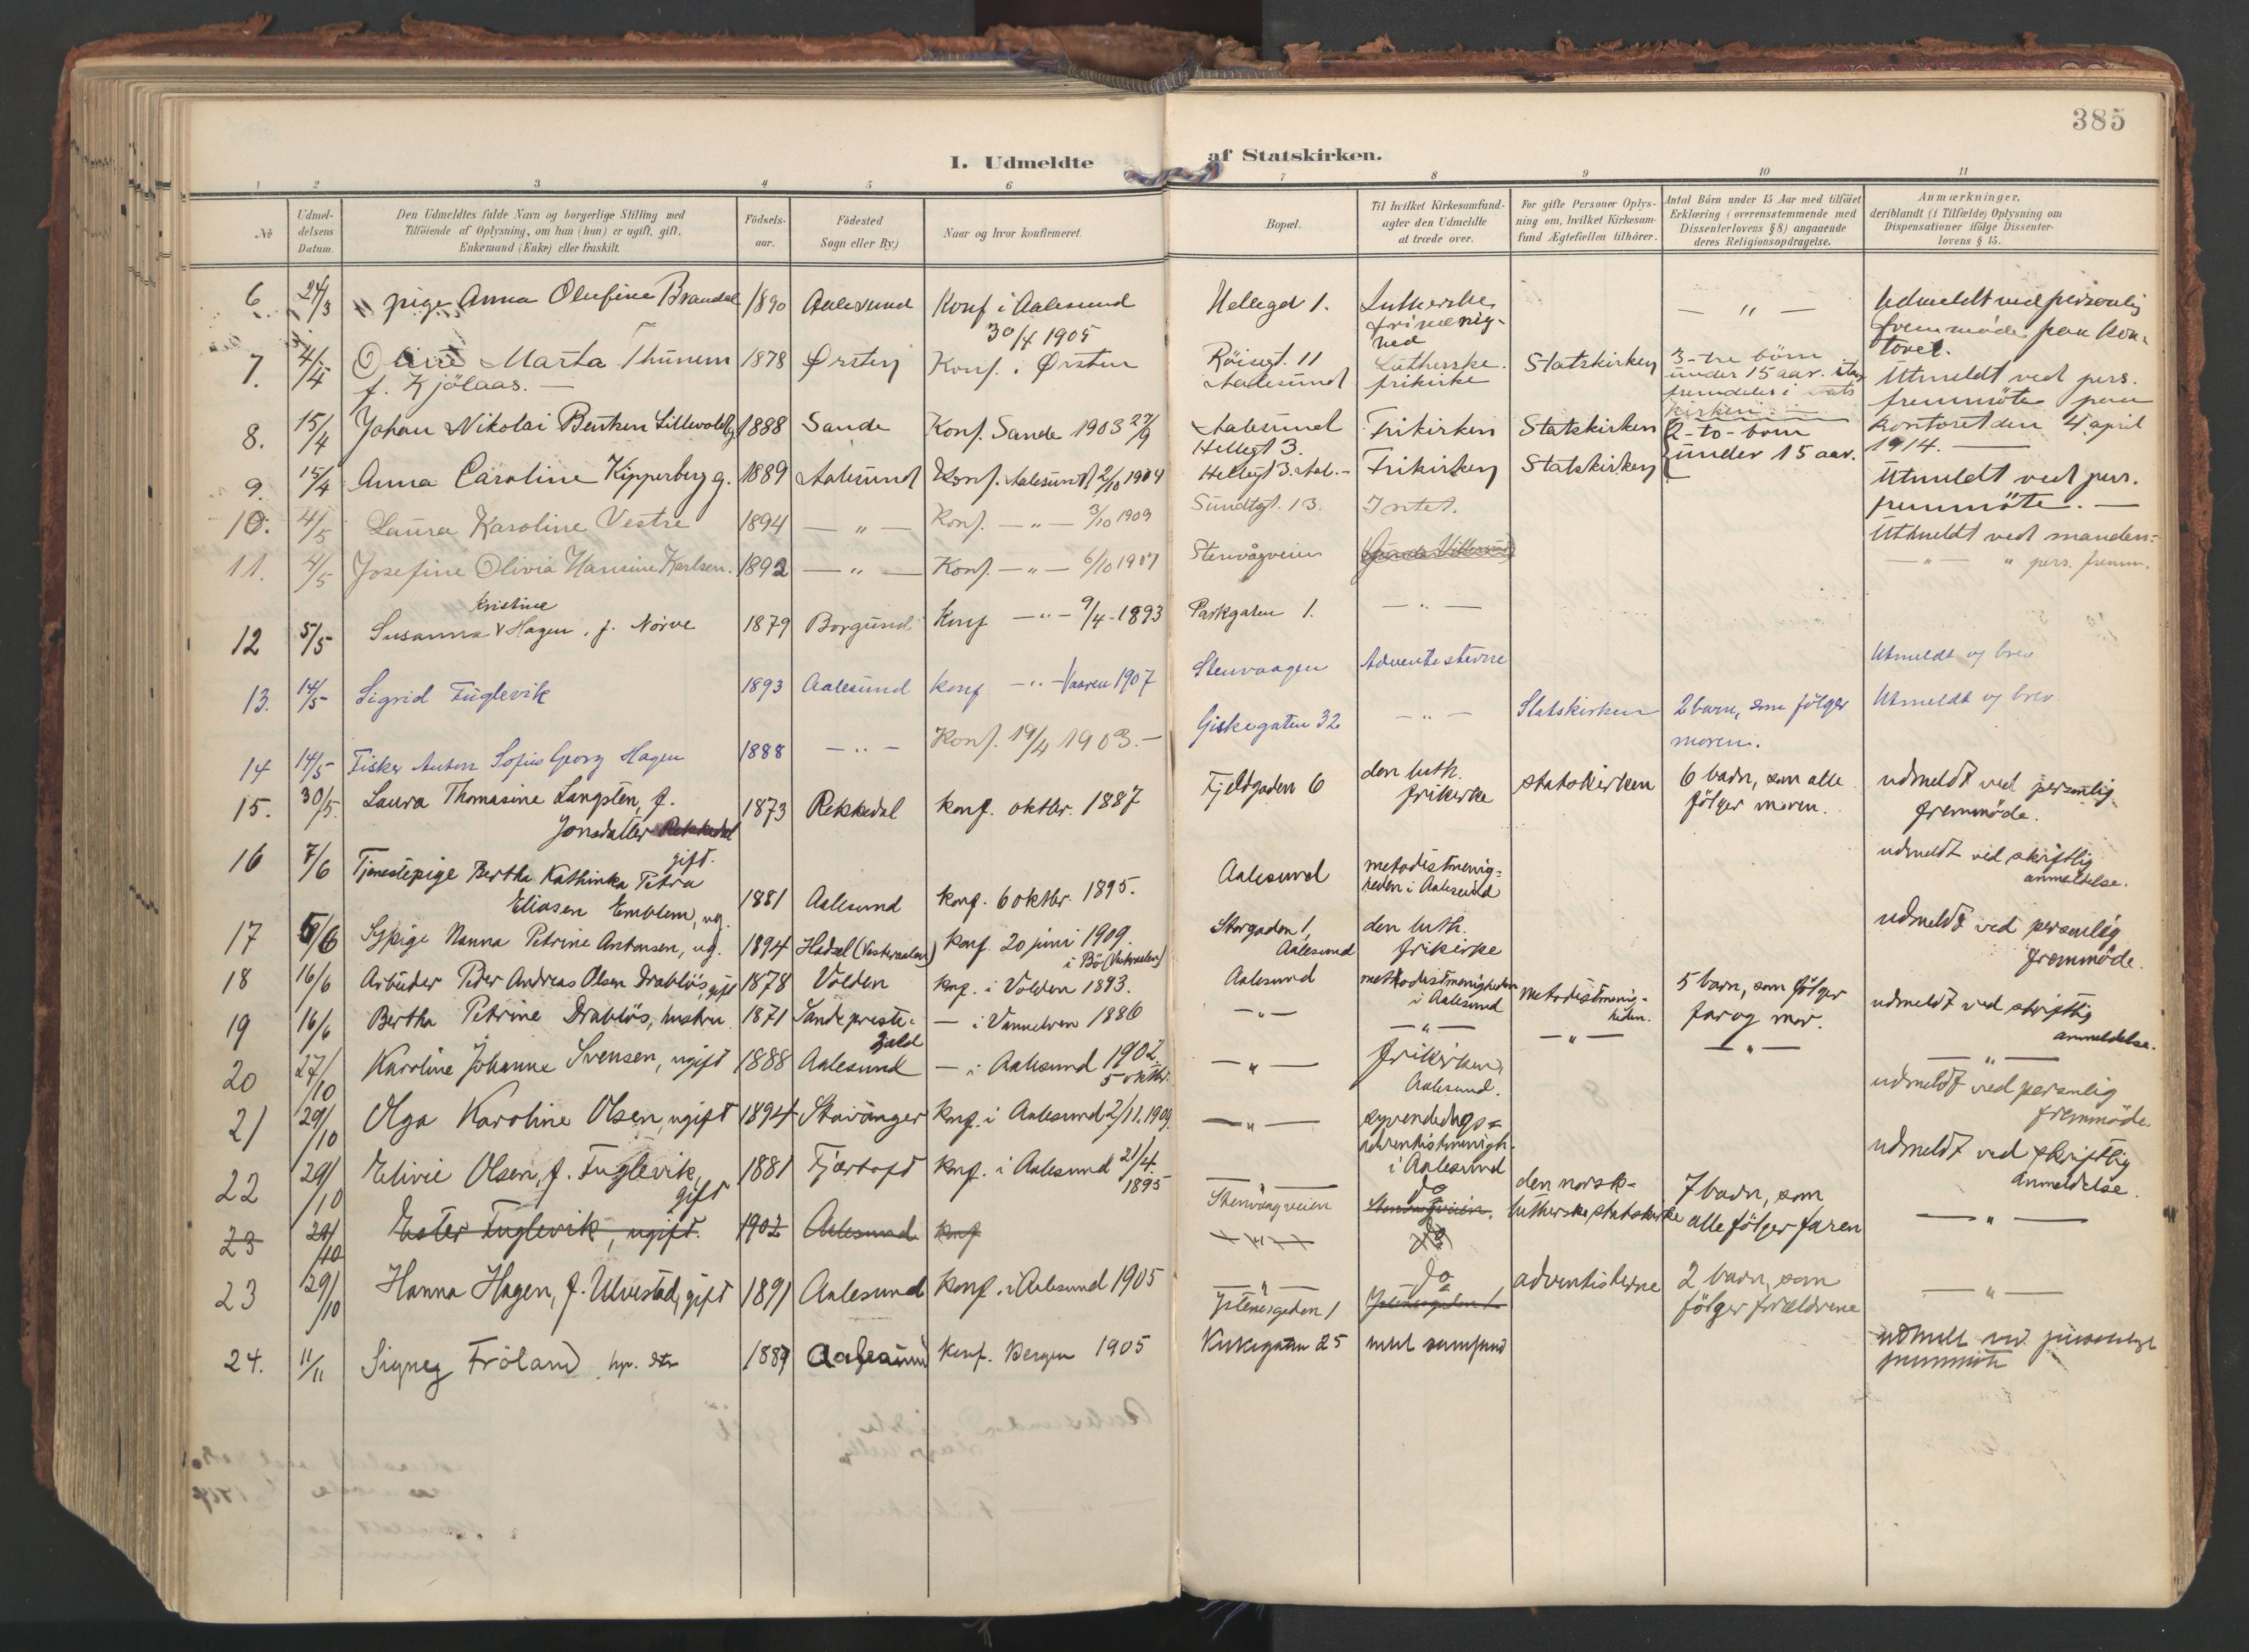 385
I. Udmeldte af Statskirken.
1 2 3 4 5 6 7 8 9 10 11
№
Udmeldelsens Datum.
Den Udmeldtes fulde Navn og borgerlige Stilling med
Tilföiende af Oplysning, om han (hun) er ugift, gift,
Enkemand (Enke) eller fraskilt.
Födselsaar.
Födested
Sogn eller By)
Naar og hvor konfirmeret.
Bopæl.
Til hvilket Kirkesamfund
agter den Udmeldte
at træde over.
For gifte Personer Oplys-
ning om, hvilket Kirkesam-
fund Ægtefællen tilhörer.
Antal Börn under 15 Aar med tilföiet
Erklæring (overensstemmende med
Dissenterlovens § 8) angaaende
deres Religionsopdragelse.
Anmærkninger,
deriblandt (i Tilfælde) Oplysning om
Dispensationer ifölge Dissenter-
lovens § 15.
6 24/3 " pige Anna Olufine Brandal 1890 Aalesund Konf i Aalesund
30/4 1905
Hellegd 1. Lutherske
frimenig-
hed
— " —
Udmeldt ved personlig
fremmöde paa kon-
toret.
7. 4/4 Oline Marta Thunem 1878 Ørsten Konf. i Ørsten
f. Kjölaas. —
Röisgt. 11
Aalesund
Lutherske.
frikirke
Statskirken
3-tre börn
under 15 aar. staa
fremdeles i stats
kirken. —
Utmeldt ved pers.
fremmöte paa
kontoret den 4 april
1914. —
8. 15/4 Johan Nikolai Bentsen 1888 Sande Konf. Sande 1903 27/9
Aalesund
Hellegt 3.
Frikirken Statskirken
2-to-born
under 15 aar.
9. 15/4 Anna Caroline Kipperberg g. 1889 Aalesund Konf. Aalesund 2/10 1904
Hellegt 3. Aal.- Frikirken Statskirken
Utmeldt ved pers.
fremmöte. —
10. 4/5 Laura Karoline Vestre 1894 — " — Konf. — " — 3/10 1909
Sundtgt. 13. Intet.
Utmeldt ved manden-
11. 4/5 Josefine Olivia Hansine Karlsen. 1892 — " — Konf. — " — 6/10 1907
Stenvågveien
— " — " pers. fremm.
Kristine
12 5/5 Susanna v Hagen, f. Nörve 1879 Borgund Konf — " — 9/4-1893
Parkgaten 1. — " —
13. 14/5 Sigrid Fuglevik 1893 Aalesund Konf — " — Vaaren 1907
Stenvaagen Adventisterne
Utmeldt og brev
14 14/5 Fisker Anton Sofus Georg Hagen 1888 — " — Konf. 19/4 1903. —
Giskegaten 32 — " — Statskirken 2 barn, som fölger
moren.
Utmeldt og brev
15. 30/5. Laura Thomasine Langsten, f. 1873 Rekkedal konf. oktbr. 1887
Jonsdatter Rekkedal
gift.
Fjeldgaden 6 den luth.
frikirke
statskirken 6 barn, som alle
fölger moren.
udmeldt ved personlig
fremmöde.
16 7/6 Tjenestepige Bertha Kathinka Petra
Eliasen Emblem, ug. 1881 Aalesund konf. 6 oktbr. 1895.
Aalesund metodistmenig-
heden i Aalesund
udmeldt ved skriftlig
anmeldelse.
17 6/6 Sypige Nanna Petrine Antonsen, ug. 1894 Hadsel (Vesteraalen) konf. 20 juni 1909.
i Bö (Vesteraalen)
Storgaden 1,
Aalesund
den luth.
frikirke
udmeldt ved personlig
fremmöde.
18 16/6 Arbeider Peder Andreas Olsen Drablös, gift 1878 Volden konf. i Volden 1893.
Aalesund methodistmenigheden
i Aalesund
Metodistmenig-
heden.
5 barn, som fölger
far og mor.
udmeldt ved skriftlig
anmeldelse.
19 16/6 Bertha Petrine Drablös, hustru 1871 Sande preste-
gjeld
— i Vannelven 1886
— " — — " — — " — — " — — " —
20 27/10 Karoline Johanne Svensen, ugift 1888 Aalesund — i Aalesund 1902.
5 oktbr.
— " — frikirken,
Aalesund.
udmeldt ved personlig
fremmöde.
21 29/10 Olga Karoline Olsen, ugift 1894 Stavanger konf. i Aalesund 2/11.1909.
— " — syvendedags-
adventistmenigh.
i Aalesund
udmeldt ved skriftlig
anmeldelse.
22 29/10 Elivie Olsen, f. Fuglevik,
gift
1881 Fjærtoft konf. i Aalesund 21/4.
1895
— " —
Stenvaagveien
do
Stenvaagveien.
den norsk-
lutherske statskirke
7 barn, som
alle fölger faren
— " —
23 29/10 Ester Fuglevik, ugift. 1902 Aalesund konf
— " — do
23 29/10 Hanna Hagen, f. Ulvestad, gift 1891 Aalesund konf. i Aalesund 1905
— " —
Ystenesgaden 1
do
Ystenesgaden 1
adventisterne 2 barn, som
fölger forældrene
— " —
24. 11/11 Signeg Fröland 1889 Aalesund konf. Bergen 1905
Kirkegaten 25 intet samfund
udmeldt ved personligt
fremmöte